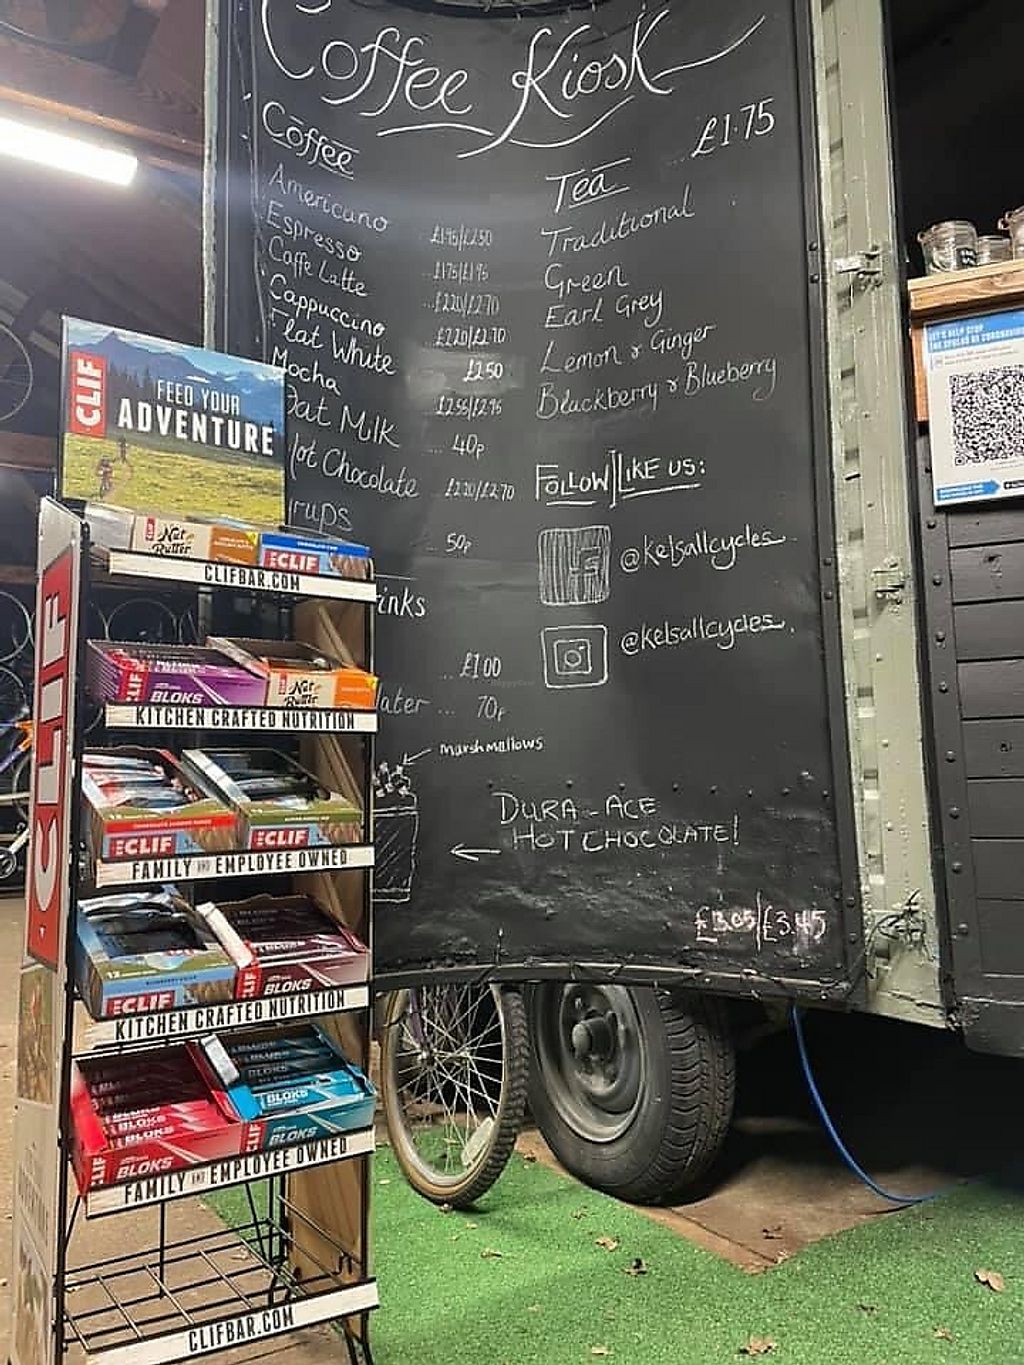 Coffee Kiosk
Coffee
Americano £1.95/£2.50
Espresso ...£1.75/£1.95
Caffe Latte ...£2.20/£2.70
Cappuccino £2.20/£2.70
Flat White £2.50
Mocha £2.55/£2.95
Oat Milk 40p
Hot Chocolate £2.20/£2.70
rups ... 50p
inks
... £1.00
later ... 70p
marshmallows
£1.75
Tea
Traditional
Green
Earl Grey
Lemon & Ginger
Blackberry & Blueberry
FOLLOW/LIKE US:
@kelsallcycles
@kelsallcycles
DURA-ACE
HOT CHOCOLATE!
£3.05/£3.45
CLIF
FEED YOUR
ADVENTURE
CLIF
Nut
Butter
CLIF
CLIFBAR.COM
CLIF
BLOKS
Nut
Butter
KITCHEN CRAFTED NUTRITION
CLIF
CLIF
FAMILY AND EMPLOYEE OWNED
12
CLIF
CLIF
BLOKS
KITCHEN CRAFTED NUTRITION
BLOKS
BLOKS
CLIF
BLOKS
BLOKS
CLIF
BLOKS
FAMILY AND EMPLOYEE OWNED
CLIFBAR.COM
LET'S HELP STOP
THE SPREAD OF CORONAVIRUS